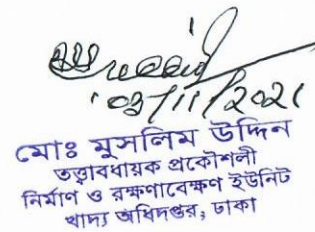 03/11/2021
মোঃ মুসলিম উদ্দিন
তত্ত্বাবধায়ক প্রকৌশলী
নির্মাণ ও রক্ষণাবেক্ষণ ইউনিট
খাদ্য অধিদপ্তর, ঢাকা